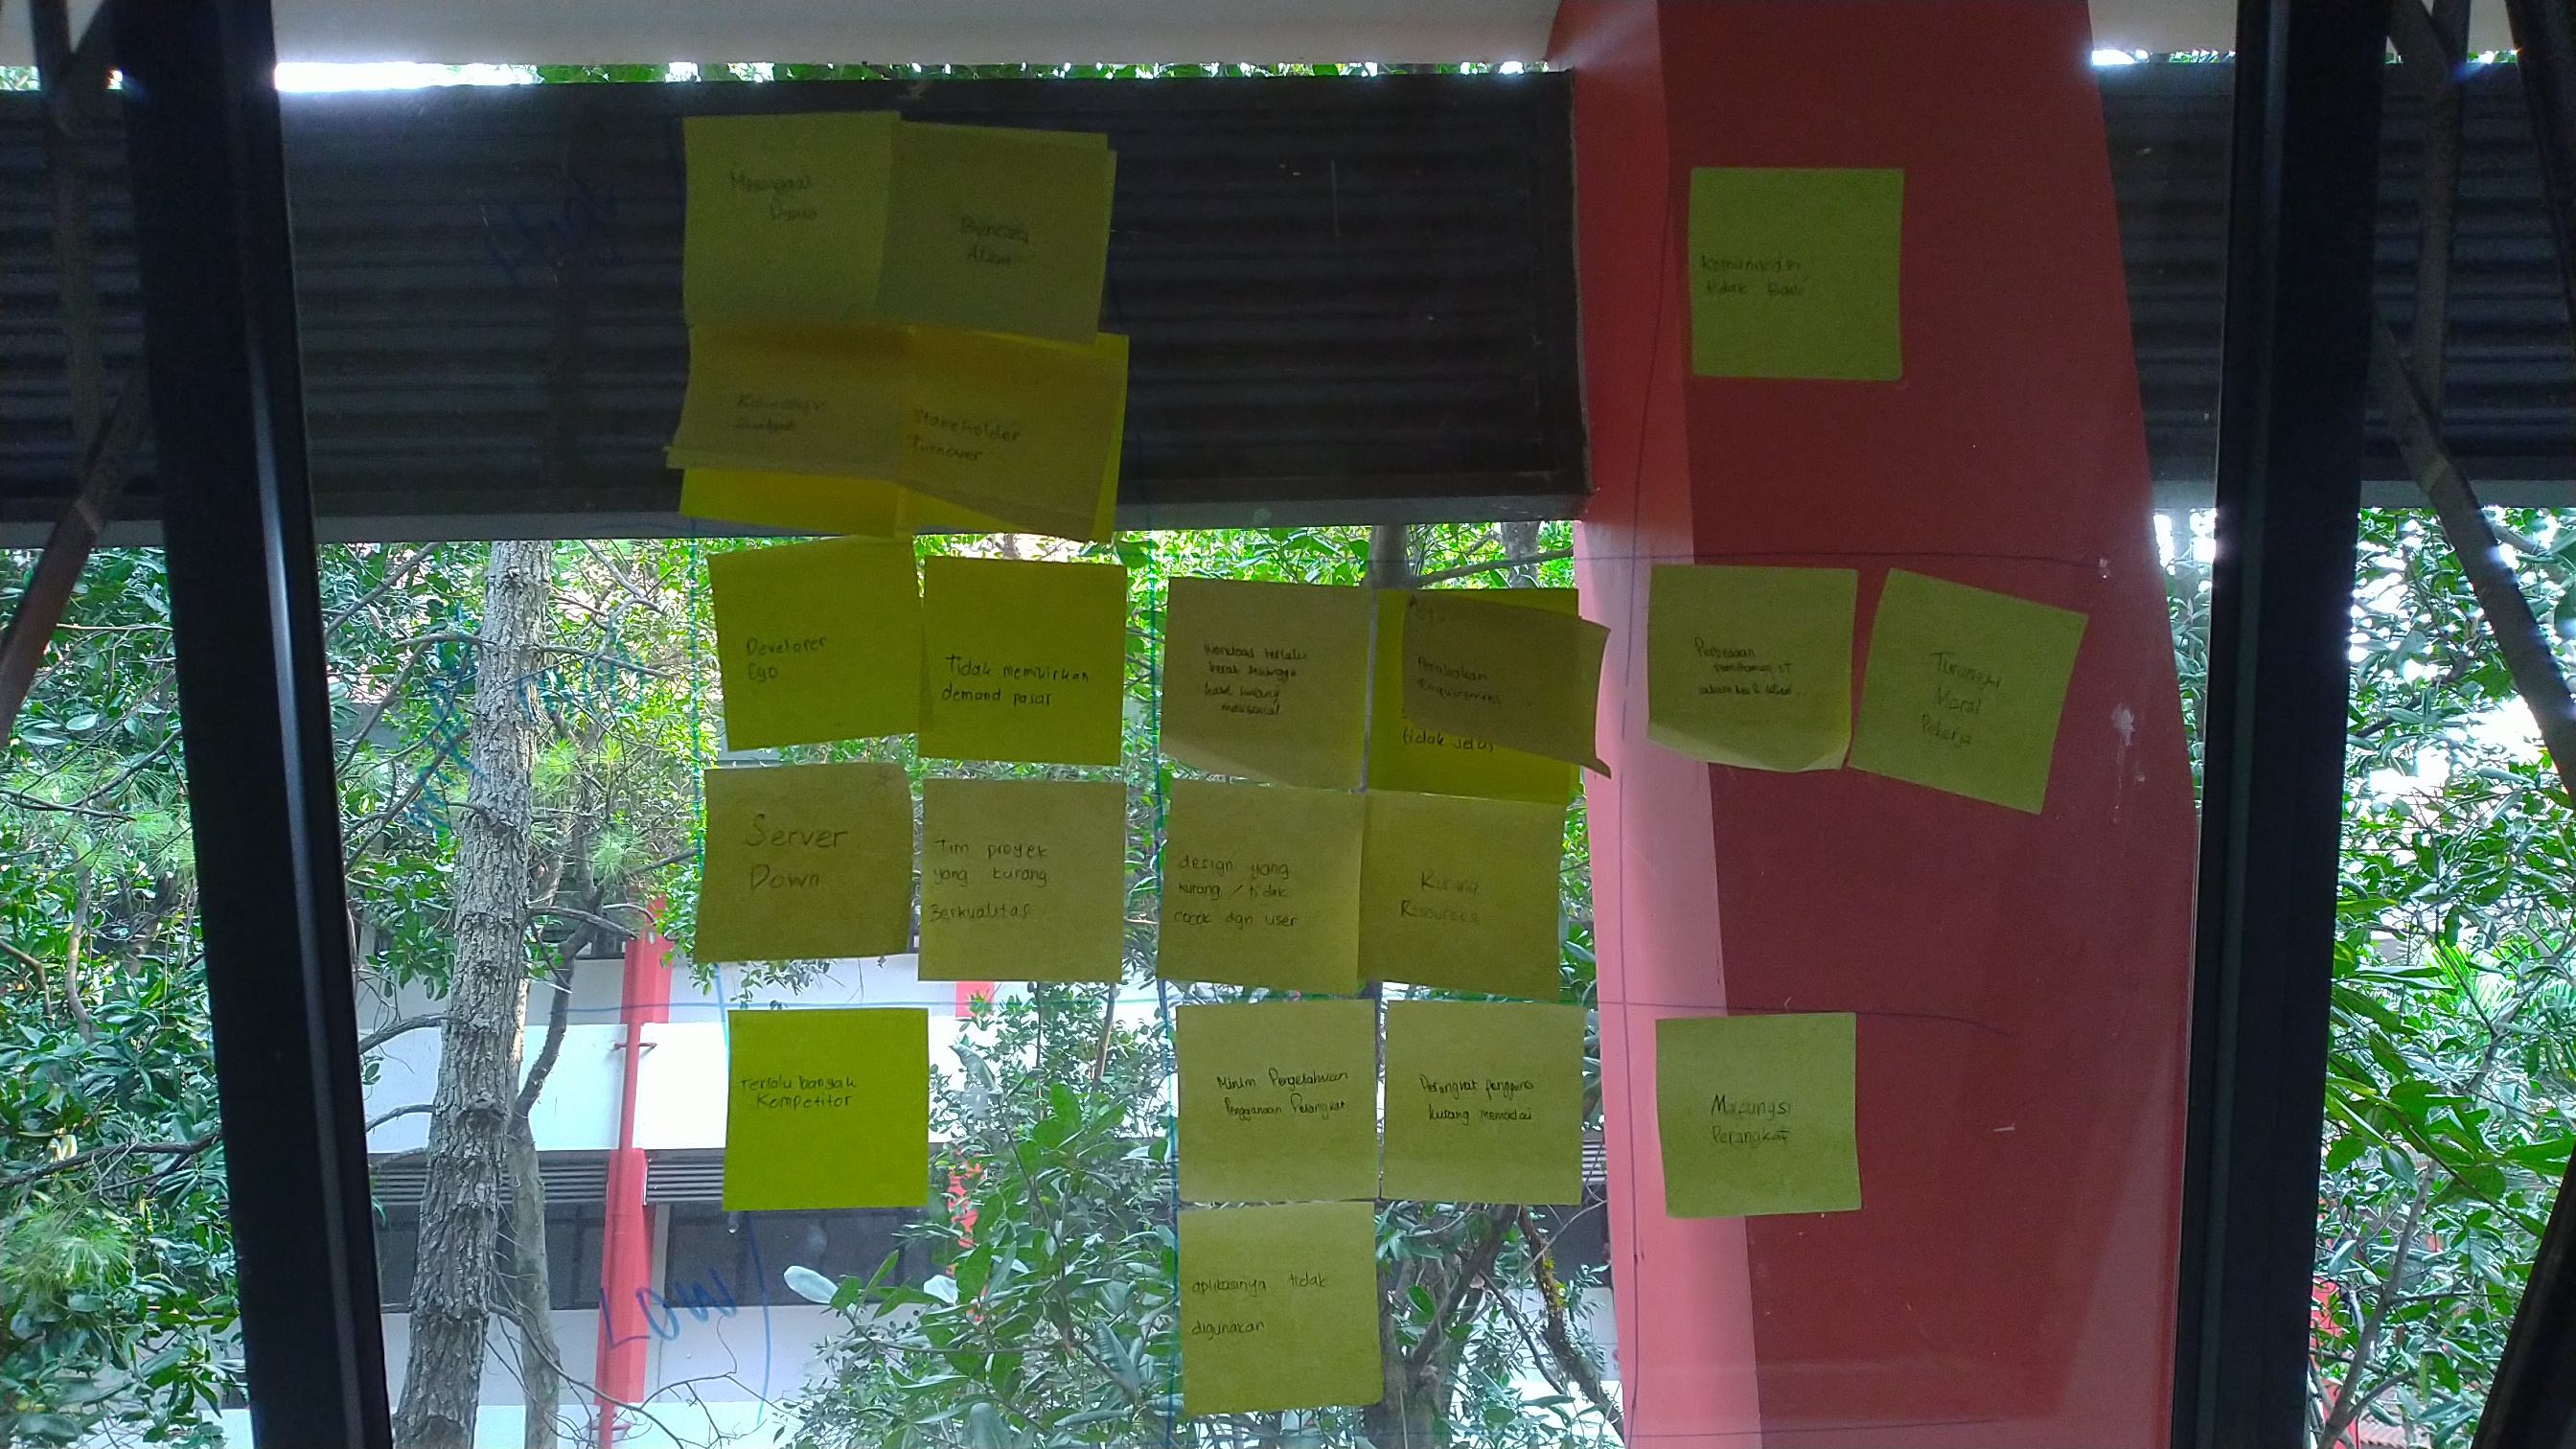 High
Meninggal
Dunia
Bencana
Alam
Komunikasi
tidak Baik
Kekurangan
Budget
Stakeholder
Turnover
Developer
Ego
Tidak memikirkan
demand pasar
Workload terlalu
berat sehingga
hasil kurang
maksimal
Perubahan
Requirement
tidak jelas
Perbedaan
Turunnya
Moral
Pekerja
Server
Down
Tim proyek
yang kurang
Berkualitas
design yang
kurang / tidak
cocok dgn user
Kurang
Resources
Terlalu banyak
Kompetitor
Minim Pengetahuan
Penggunaan Perangkat
Perangkat pengguna
kurang memadai
Malfungsi
Perangkat
Low
aplikasinya tidak
digunakan